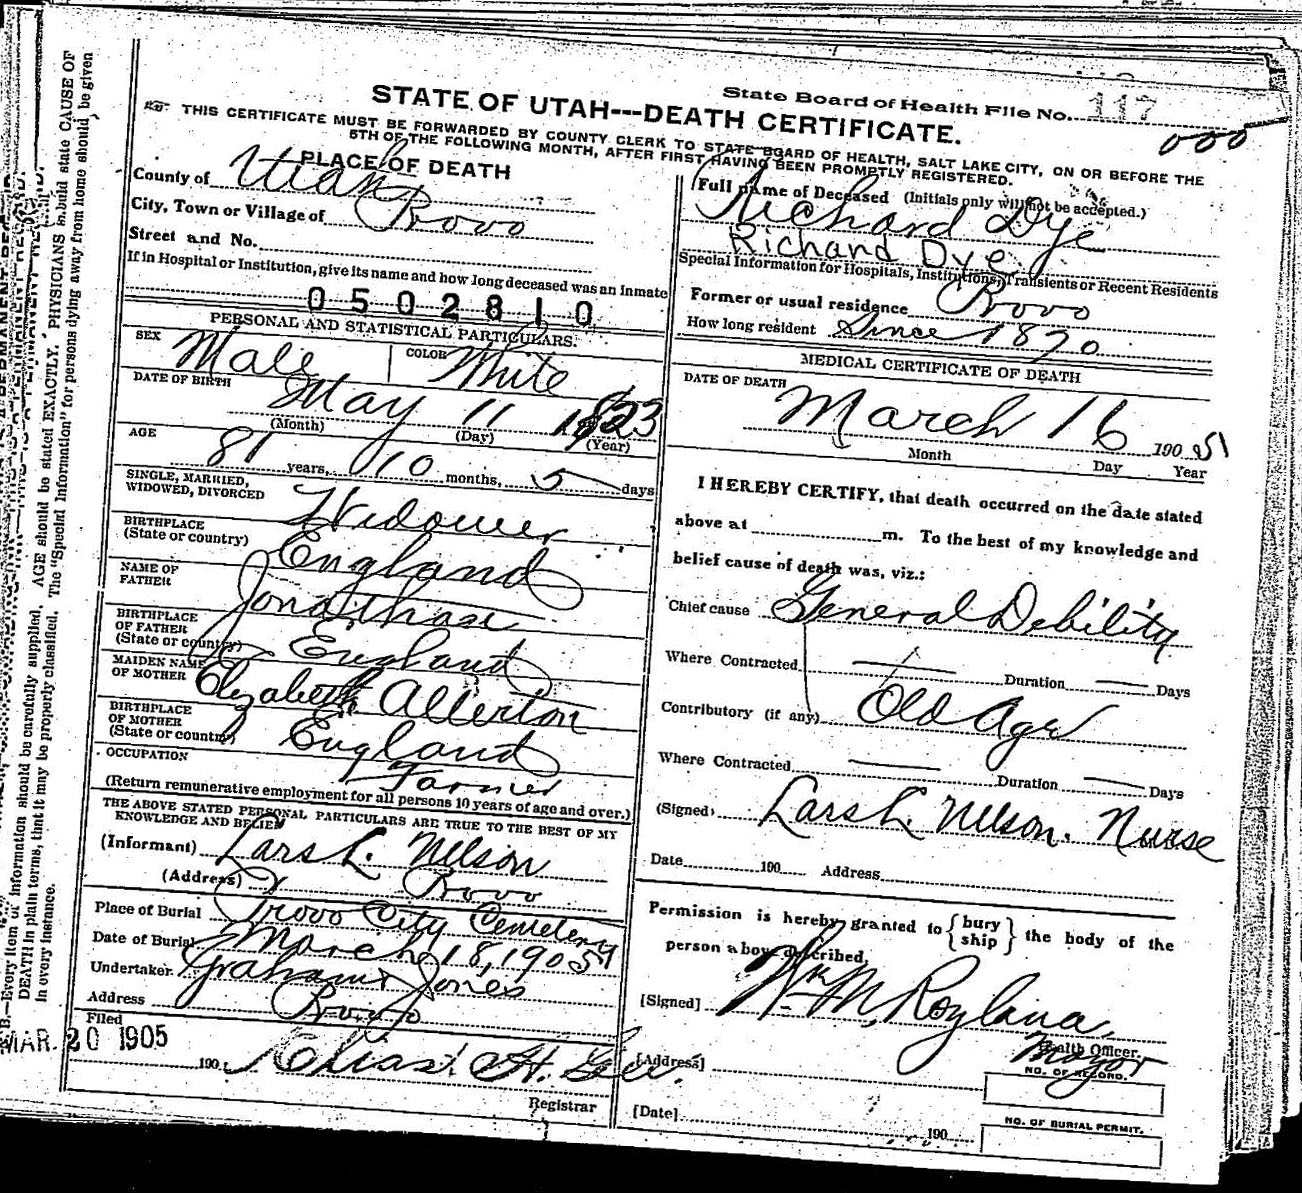 State Board of Health File No. 117
000
STATE OF UTAH---DEATH CERTIFICATE.
THIS CERTIFICATE MUST BE FORWARDED BY COUNTY CLERK TO STATE BOARD OF HEALTH, SALT LAKE CITY, ON OR BEFORE THE
5TH OF THE FOLLOWING MONTH, AFTER FIRST HAVING BEEN PROMPTLY REGISTERED.
PLACE OF DEATH
County of Utah
City, Town or Village of Provo
Street and No.
If in Hospital or Institution, give its name and how long deceased was an inmate
0502810
PERSONAL AND STATISTICAL PARTICULARS.
SEX Male COLOR White
DATE OF BIRTH May 11 1823
(Month) (Day) (Year)
AGE 81 years, 10 months, 5 days
SINGLE, MARRIED,
WIDOWED, DIVORCED Widower
BIRTHPLACE
(State or country) England
NAME OF
FATHER Jonathan
BIRTHPLACE
OF FATHER
(State or country) England
MAIDEN NAME
OF MOTHER Elizabeth Allerton
BIRTHPLACE
OF MOTHER
(State or country) England
OCCUPATION
Farmer
(Return remunerative employment for all persons 10 years of age and over.)
THE ABOVE STATED PERSONAL PARTICULARS ARE TRUE TO THE BEST OF MY
KNOWLEDGE AND BELIEF
(Informant) Lars L. Nelson
(Address) Provo
Place of Burial Provo City Cemetery
Date of Burial March 18, 1905
Undertaker Graham & Jones
Address Provo
Filed
MAR 20 1905
190 Elias H.
Registrar
Full name of Deceased (Initials only will not be accepted.)
Richard Dye
Richard Dye
Special Information for Hospitals, Institutions, Transients or Recent Residents
Former or usual residence Provo
How long resident Since 1870
MEDICAL CERTIFICATE OF DEATH
DATE OF DEATH
March 16 1905
Month Day Year
I HEREBY CERTIFY, that death occurred on the date stated
above at m. To the best of my knowledge and
belief cause of death was, viz.:
Chief cause General Debility
Where Contracted Duration Days
Contributory (if any) Old Age
Where Contracted Duration Days
(Signed) Lars L. Nelson. Nurse
Date 190 Address
Permission is hereby granted to { bury
ship } the body of the
person above described,
[Signed] Wm M Roylance
Health Officer.
Mayor
[Address]
NO. OF RECORD.
[Date] 190
NO. OF BURIAL PERMIT.
B.—Every item of information should be carefully supplied. AGE should be stated EXACTLY. PHYSICIANS should state CAUSE OF
DEATH in plain terms, that it may be properly classified. The "Special Information" for persons dying away from home should be given
in every instance.